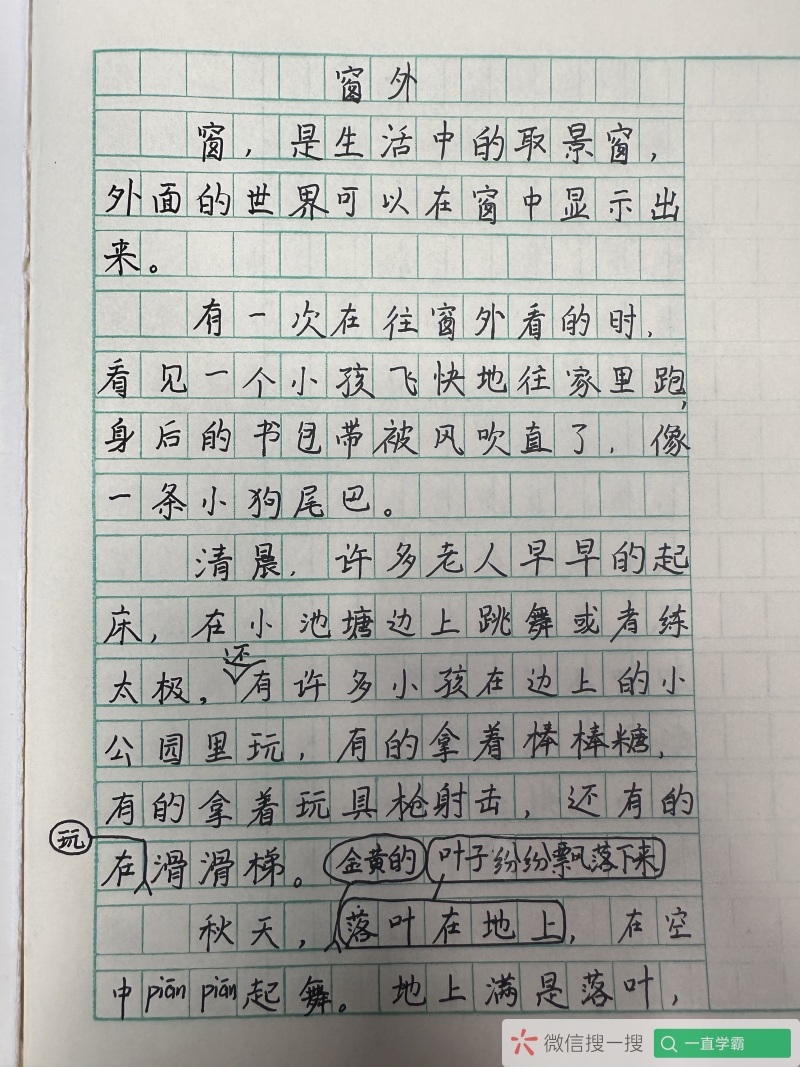 窗外
窗，是生活中的取景窗，
外面的世界可以在窗中显示出
来。
有一次在往窗外看的时，
看见一个小孩飞快地往家里跑，
身后的书包带被风吹直了，像
一条小狗尾巴。
清晨，许多老人早早的起
床，在小池塘边上跳舞或者练
还
太极，有许多小孩在边上的小
公园里玩，有的拿着棒棒糖，
有的拿着玩具枪射击，还有的
玩
在滑滑梯。金黄的 叶子纷纷飘落下来
秋天，落叶在地上，在空
中piānpiān起舞。地上满是落叶，
微信搜一搜 一直学霸